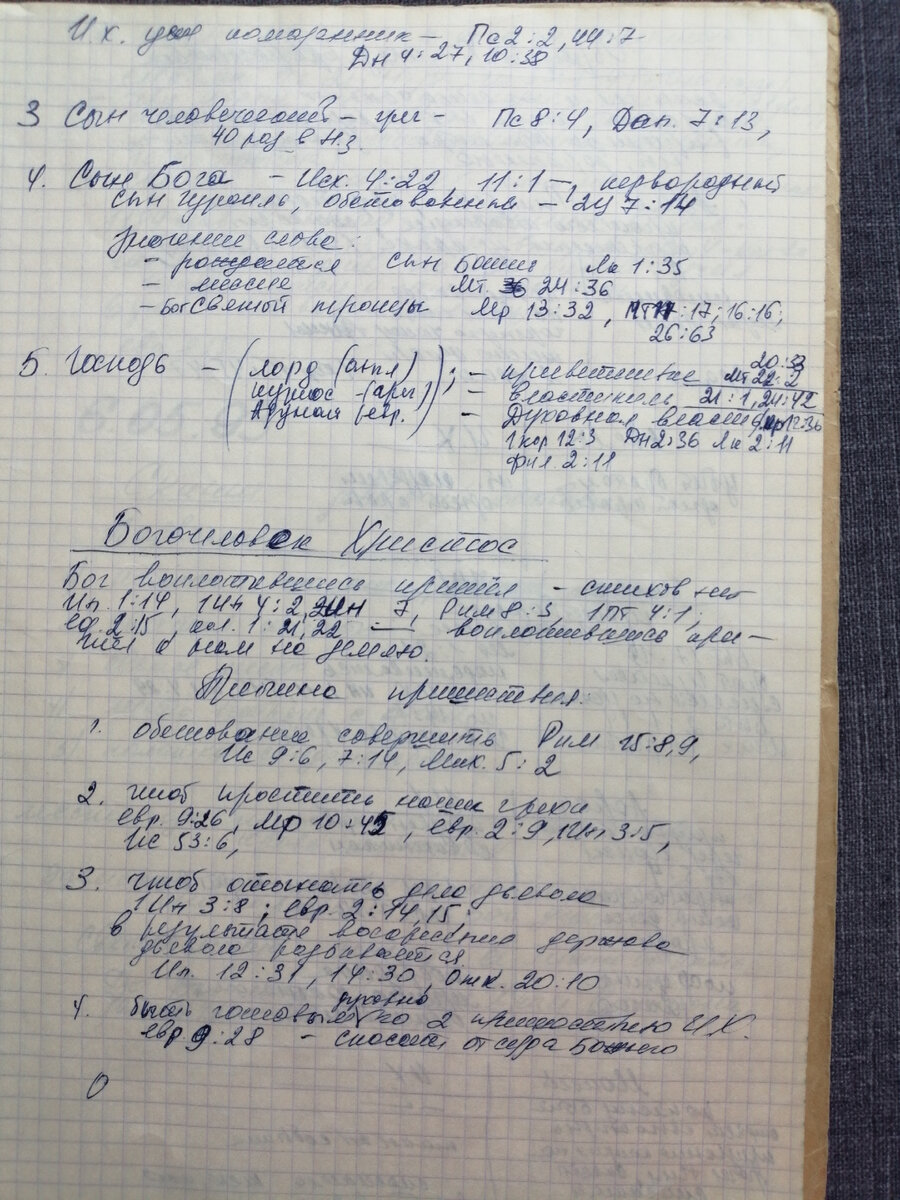 И.х. уже помазанник – Пс 2:2, 44:7
Дн 4:27, 10:38
3 Сын человеческий – грег – Пс 8:4, Дан. 7:13,
40 раз в Н.З.
4. Сын Бога – Исх. 4:22 11:1 –, первородный
сын, обетованный – 2Ц 7:14
Значение слова:
– рождается сын Божий Лк 1:35
– Мт. 24:36
– Бог Святой троицы Мр 13:32, МТ 17; 16:16;
26:63
5. Господь – (лорд (англ); – приветствие Мт 22:2
20:33
– Властитель 21:1, 24:42
(евр.) – Духовная власть Мр 12:36
1 кор 12:3 Дн 2:36 Лк 2:11
фил. 2:11
Богочеловек Христос
Бог воплотившись пришёл – стихов нет
Ин. 1:14, 1Ин 4:2, 2Ин 7, Рим 8:3, 1 ПТ 4:1;
еф 2:15, кол. 1:21,22 – воплотившись при–
шёл к нам на землю.
Причина пришествия:
1. обетование совершить Рим 15:8,9,
Ис 9:6, 7:14, Мих. 5:2
2. чтоб простить наши грехи
евр. 9:26, Мр 10:45, евр. 2:9, 1Ин 3:5,
Ис 53:6,
3. чтоб дела дьявола
1Ин 3:8; евр. 2:14,15;
в результате воскресения держава
дьявола разбивается
Ин. 12:31, 14:30, Отк. 20:10
духовно
4. быть готовым ко 2 пришествию И.Х.
евр. 9:28 – спасти от Божьего